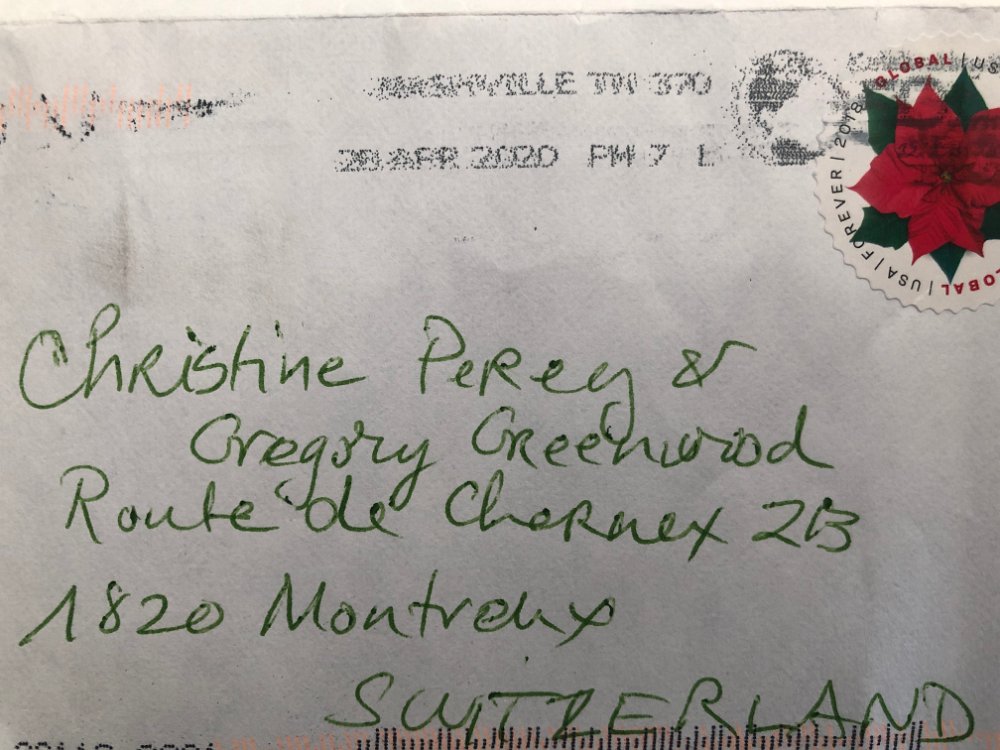 NASHVILLE TN 370
28 APR 2020 PM 7 L
GLOBAL | USA | FOREVER | 2018
GLOBAL | US
Christine Perey &
Gregory Greenwood
Route de Chernex 2B
1820 Montreux
SWITZERLAND